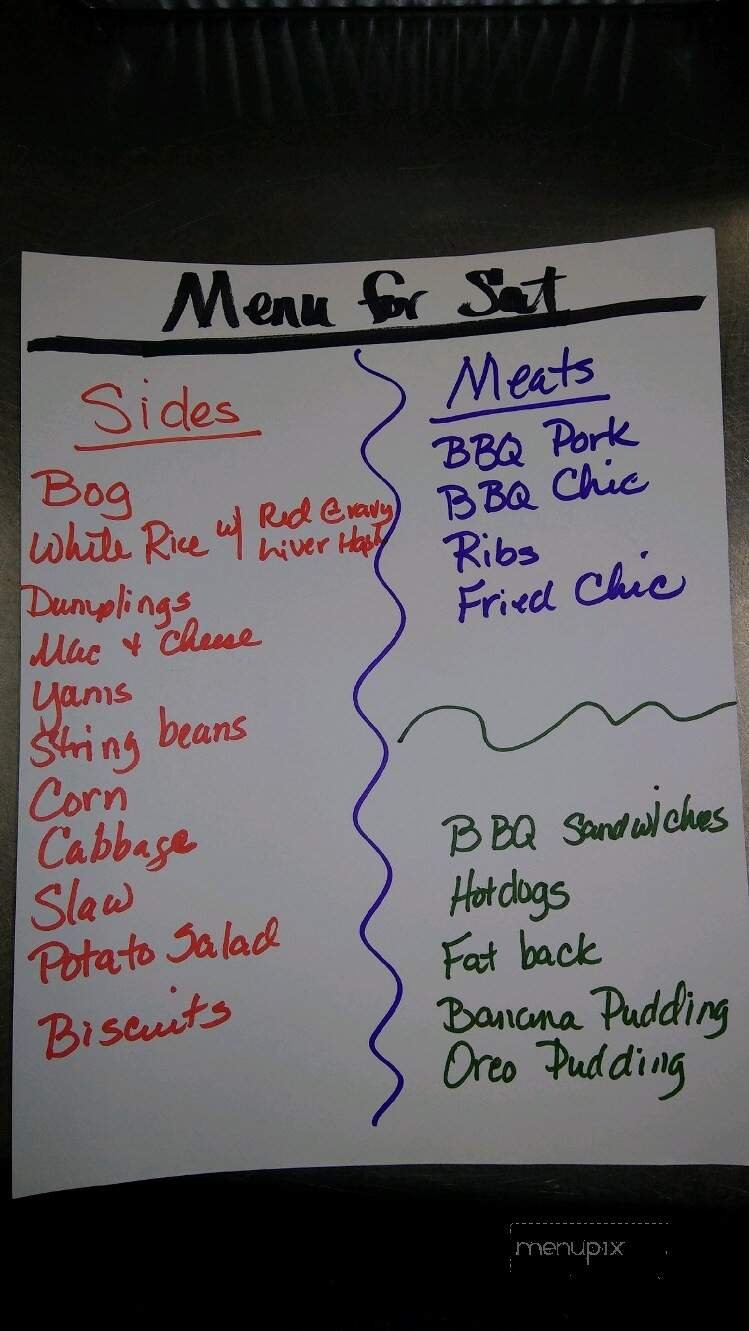 Menu for Sat
Sides
Bog
White Rice w/ Red Gravy
Liver Hash
Dumplings
Mac + Cheese
Yams
String beans
Corn
Cabbage
Slaw
Potato Salad
Biscuits
Meats
BBQ Pork
BBQ Chic
Ribs
Fried Chic
BBQ Sandwiches
Hotdogs
Fat back
Banana Pudding
Oreo Pudding
menupix